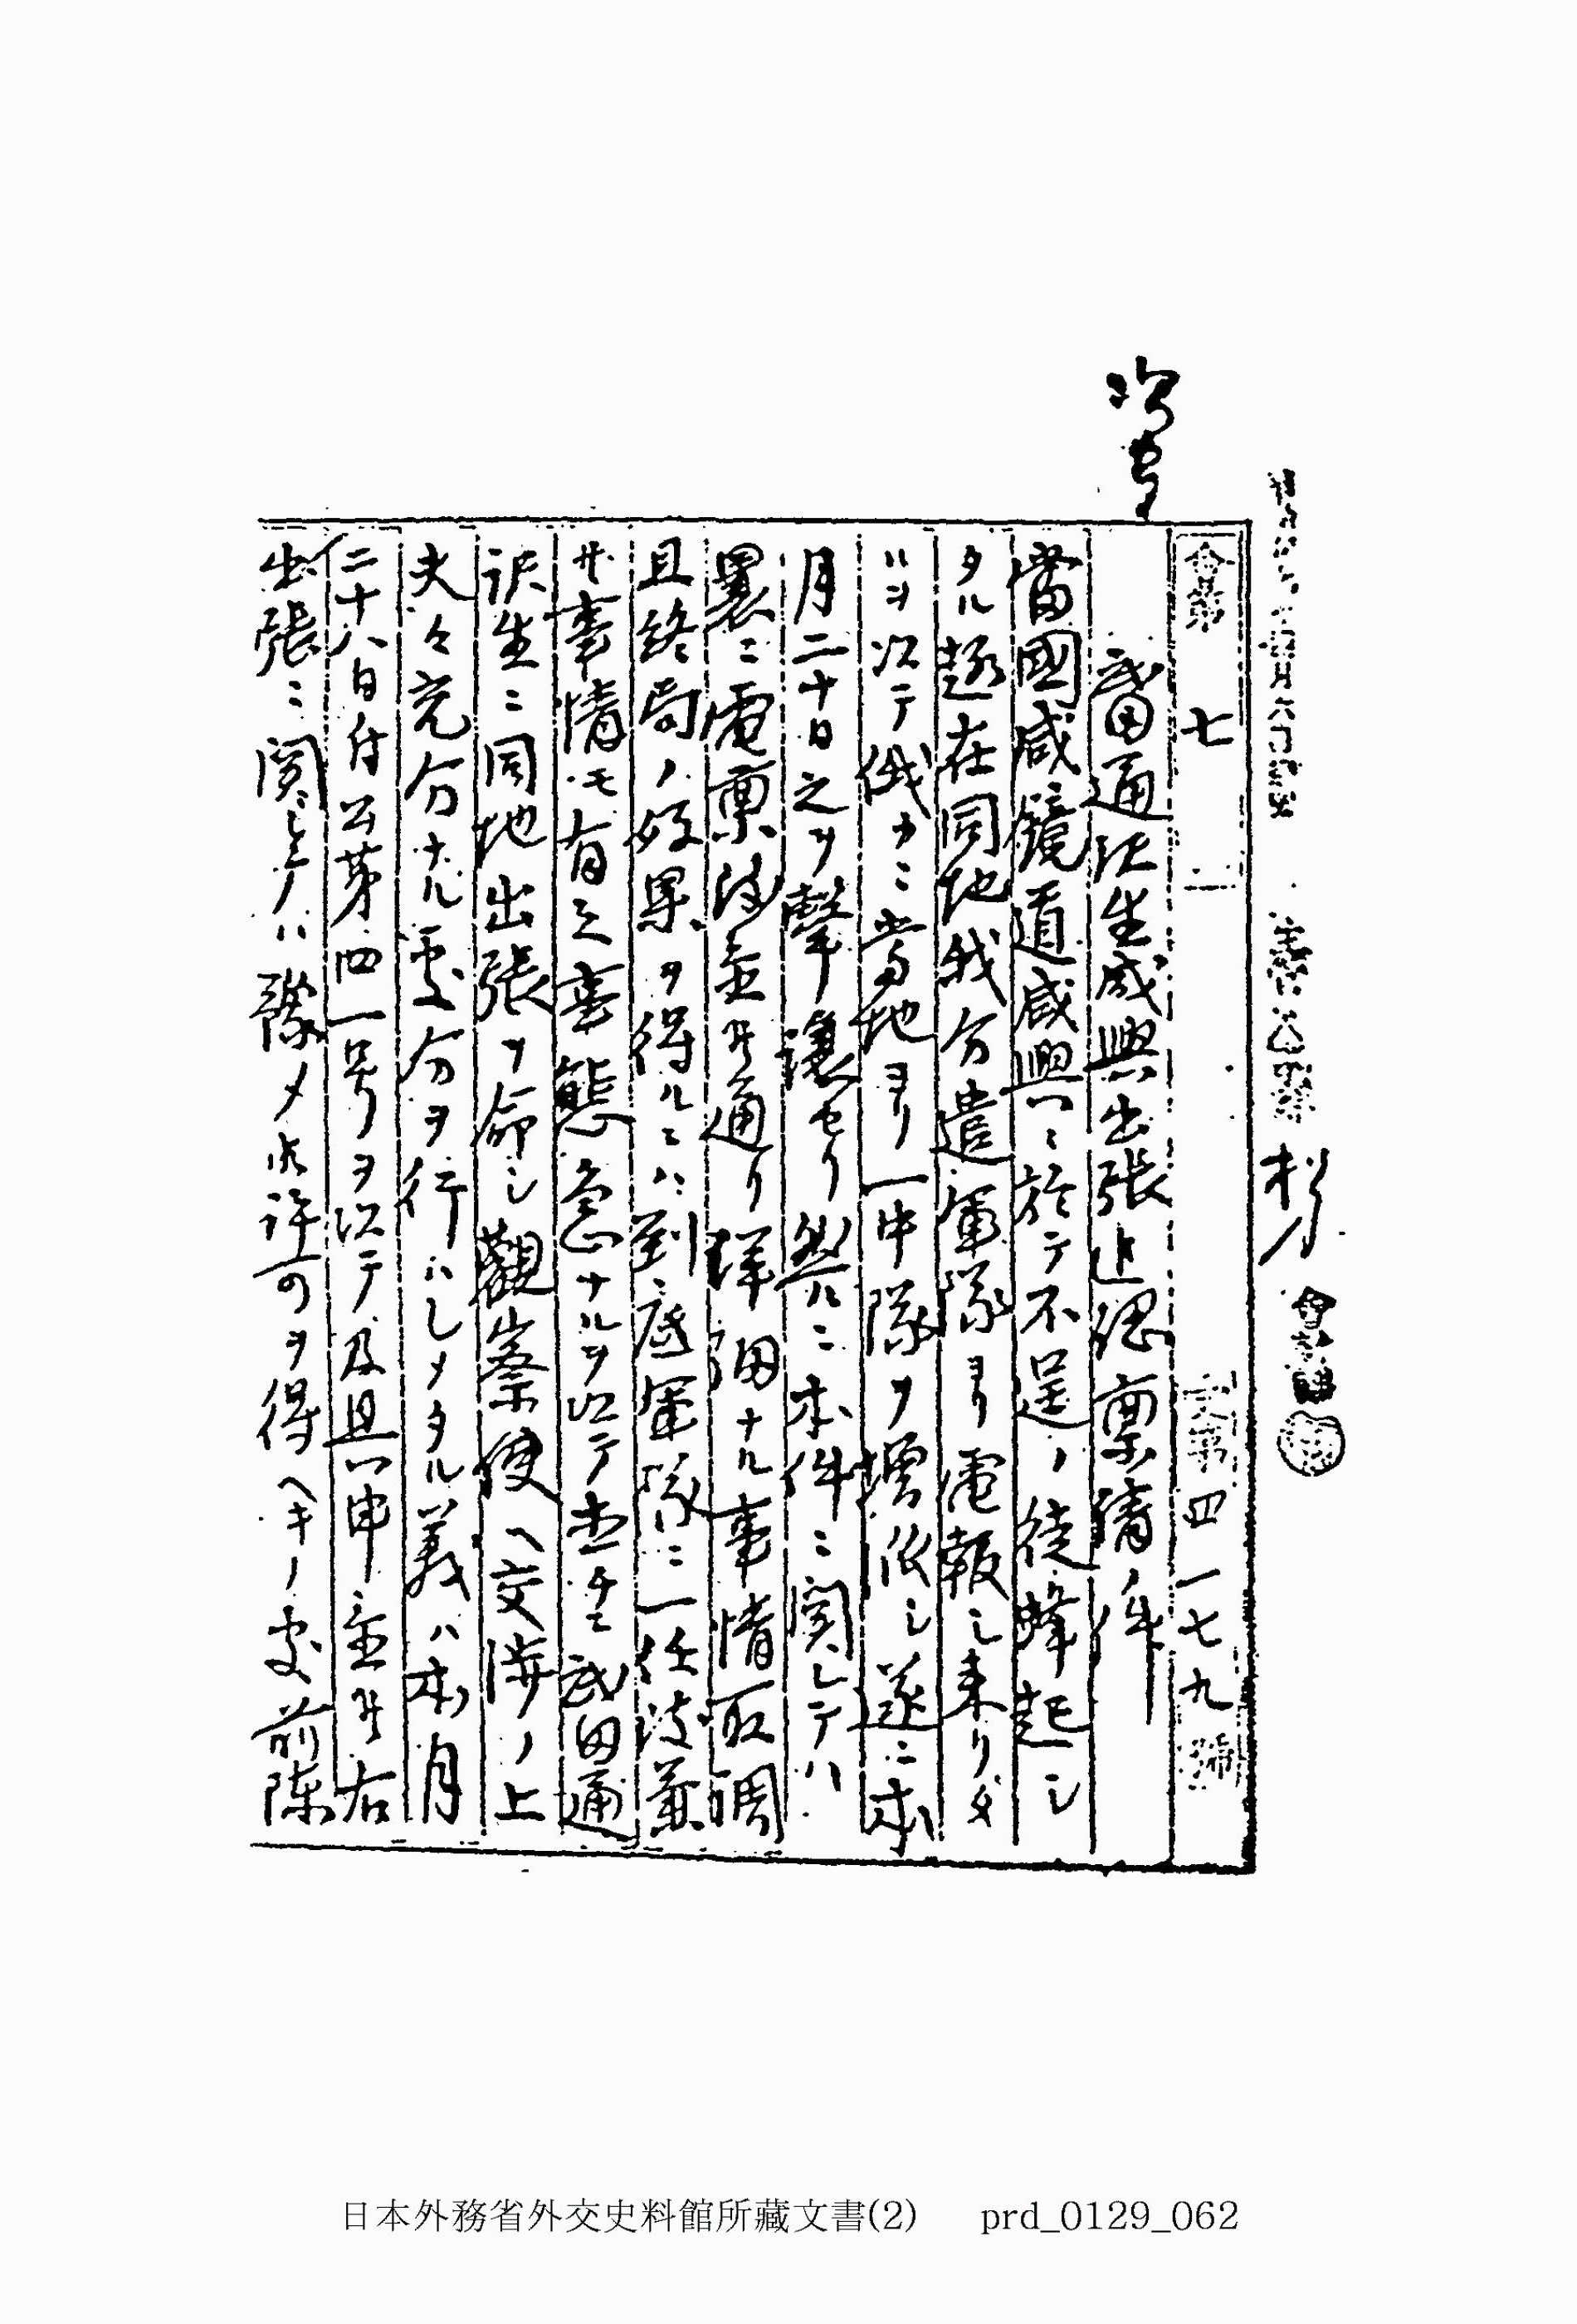 會第七一
文第四一七九號
武田通訳生咸興出張追認禀請ノ件
當國咸鏡道咸興ニ於テ不逞ノ徒蜂起シ
タル趣在同地我分遣軍隊ヨリ電報シ来リ
ヲ以テ俄カニ當地ヨリ一中隊ヲ増派シ遂ニ本
月二十日之ヲ撃攘セリ然ルニ本件ニ関シテハ
曩ニ電禀致置候通リ詳細ナル事情取調
且終局ノ好果ヲ得ルニハ到底軍隊ニ一任致兼
候事情モ有之事態急ナルヲ以テ直チニ武田通
訳生ニ同地出張ヲ命シ観察使ヘ交渉ノ上
夫々充分ナル處分ヲ行ハシメタル義ハ本月
二十八日付公第四一号ヲ以テ及具申置候右
出張ニ関シテハ豫メ御許可ヲ得ヘキノ處前陳
日本外務省外交史料館所藏文書(2) prd_0129_062